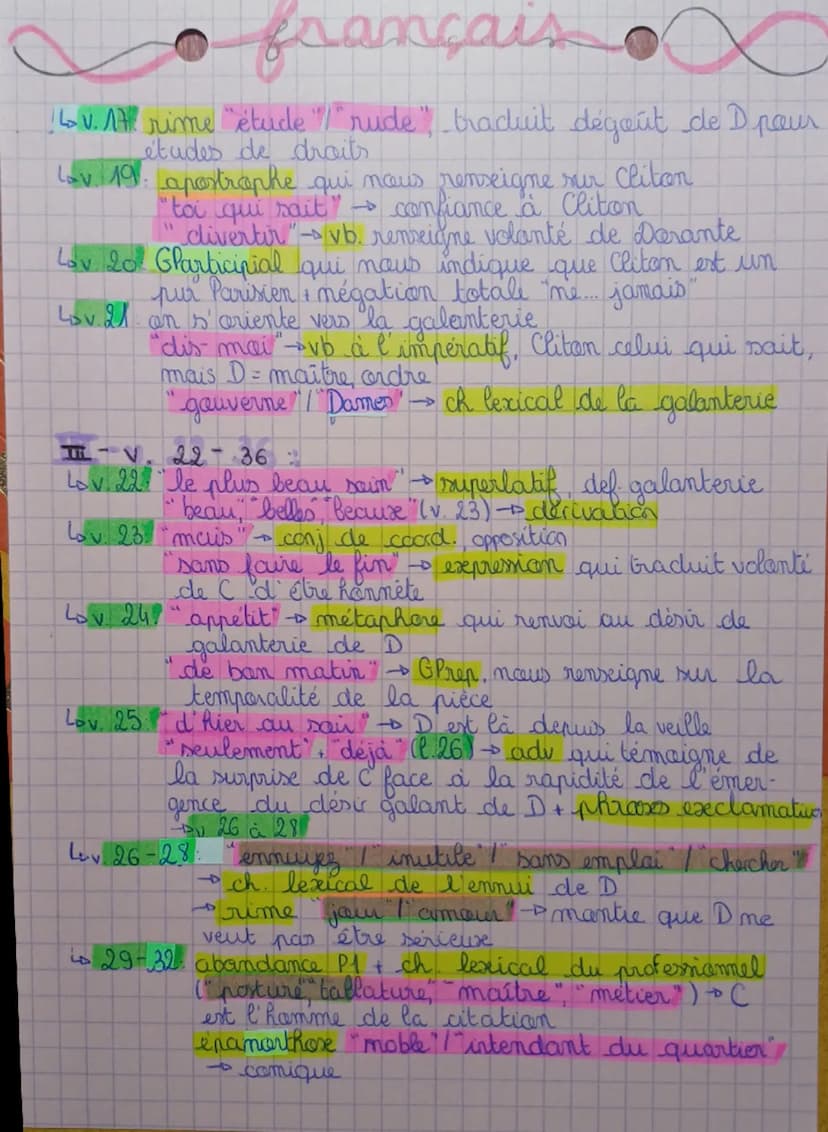 français
↳ v. 17: rime "étude"/"rude", traduit dégoût de D pour
études de droits
↳ v. 19: apostrophe qui nous renseigne sur Cliton
"toi qui sait" → confiance à Cliton
"divertir" → vb. renseigne volonté de Dorante
↳ v. 20: GParticipial qui nous indique que Cliton est un
pur Parisien + négation totale "ne... jamais"
↳ v. 21: on s'oriente vers la galanterie
"dis-moi" → vb à l'impératif, Cliton celui qui sait,
mais D = maître, ordre
"gouverne"/"Dames" → ch lexical de la galanterie
III - v. 22 - 36 :
↳ v. 22: "le plus beau soin" → superlatif, def. galanterie
"beau", "belles", "beaux" (v. 23) → dérivation
↳ v. 23: "mais" → conj de coord., opposition
"sans faire le fin" → expression qui traduit volonté
de C d'être honnête
↳ v. 24: "appétit" → métaphore qui renvoi au désir de
galanterie de D
"de bon matin" → GPrep, nous renseigne sur la
temporalité de la pièce
↳ v. 25: "d'hier au soir" → D est là depuis la veille
"seulement" + "déjà" (l.26) → adv qui témoigne de
la surprise de C face à la rapidité de l'émer-
gence du désir galant de D + phrases exclamatives
→ v 26 à 28
↳ v 26-28: "ennuyez"/"inutile"/"sans emploi"/"chercher"
→ ch. lexical de l'ennui de D
→ rime "jour"/"amour" → montre que D ne
veut pas être sérieuse
↳ 29-32: abondance P1 + ch. lexical du professionnel
("posture", "tablature", "maître", "métier") → C
est l'homme de la citation
épanorthose "noble"/"intendant du quartier"
→ comique